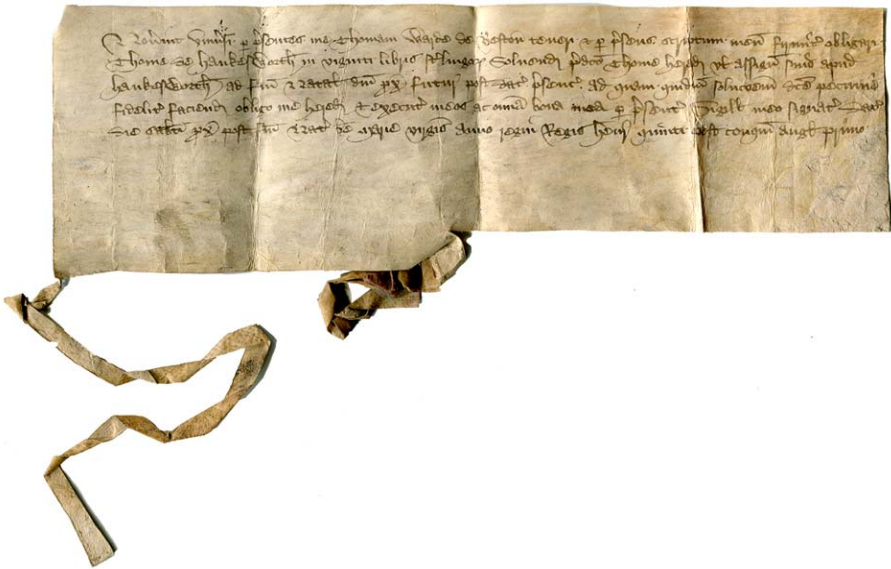 Nov̄int univ̄si p̱ p̄sentes me Thomam Warde de Beston teneri & p̱ p̄sens scriptum meū firmit̄ obligari
Thome de Hankesworth in viginti libris st̄lingoꝝ Solvend p̄dc̄o Thome hered vl̄ assign̄ suis apud
hankesworth ad festū Natal dn̄i px̄ futur̄ post dat̄ p̄senc̄ ad quam quidm̄ soluc̄oem dc̄e pecunie
fidelit̄ faciend obligo me hered & execut̄ meos ac omīa bona mea p̱ p̄sent̄ Sigill meo signat̄ Dat̄
die Sabb̄i px̄ post festū Nat̄ be Marie virgīs anno regni Regis henr̄ quinti post conqm̄ angl primo